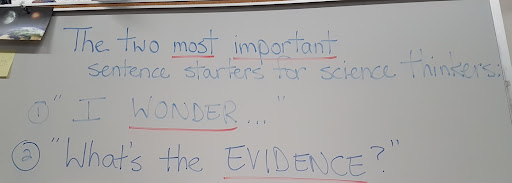 The two most important
sentence starters for science thinkers:
① "I WONDER..."
② "What's the EVIDENCE?"